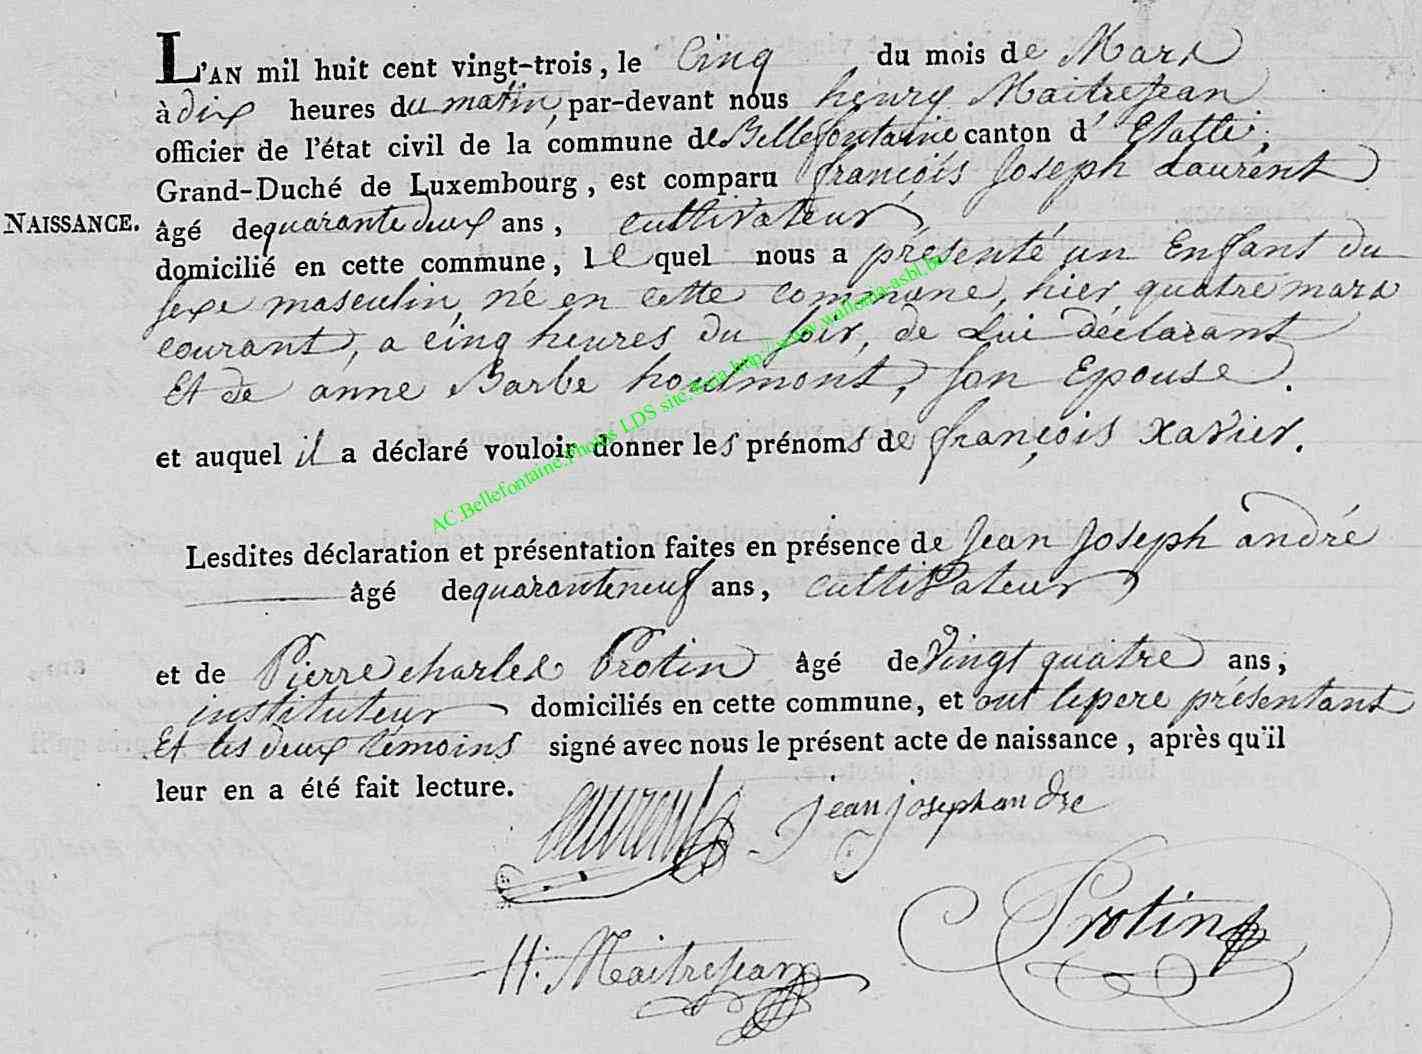 L'AN mil huit cent vingt-trois, le Cinq du mois de Mars
à dix heures du matin, par-devant nous henry Maitrejean
officier de l'état civil de la commune de Bellefontaine canton d' Etalle,
Grand-Duché de Luxembourg, est comparu françois Joseph Laurent
NAISSANCE. âgé de quarante deux ans, cultivateur,
domicilié en cette commune, le quel nous a présenté un Enfant du
sexe masculin, né en cette commune, hier quatre mars
courant, a cinq heures du soir, de Lui déclarant
Et de anne Barbe houtmont, son Epouse.
et auquel il a déclaré vouloir donner les prénoms de françois xavier.
AC.Bellefontaine.Photos LDS site.Cria http://www.wallonia-asbl.be
Lesdites déclaration et présentation faites en présence de Jean Joseph andré
âgé de quarante neuf ans, cultivateur
et de Pierre charles Protin âgé de Vingt quatre ans,
instituteur domiciliés en cette commune, et ont le pere présentant
Et les deux témoins signé avec nous le présent acte de naissance, après qu'il
leur en a été fait lecture.
Laurent jean joseph andre
Protin
H. Maitrejean